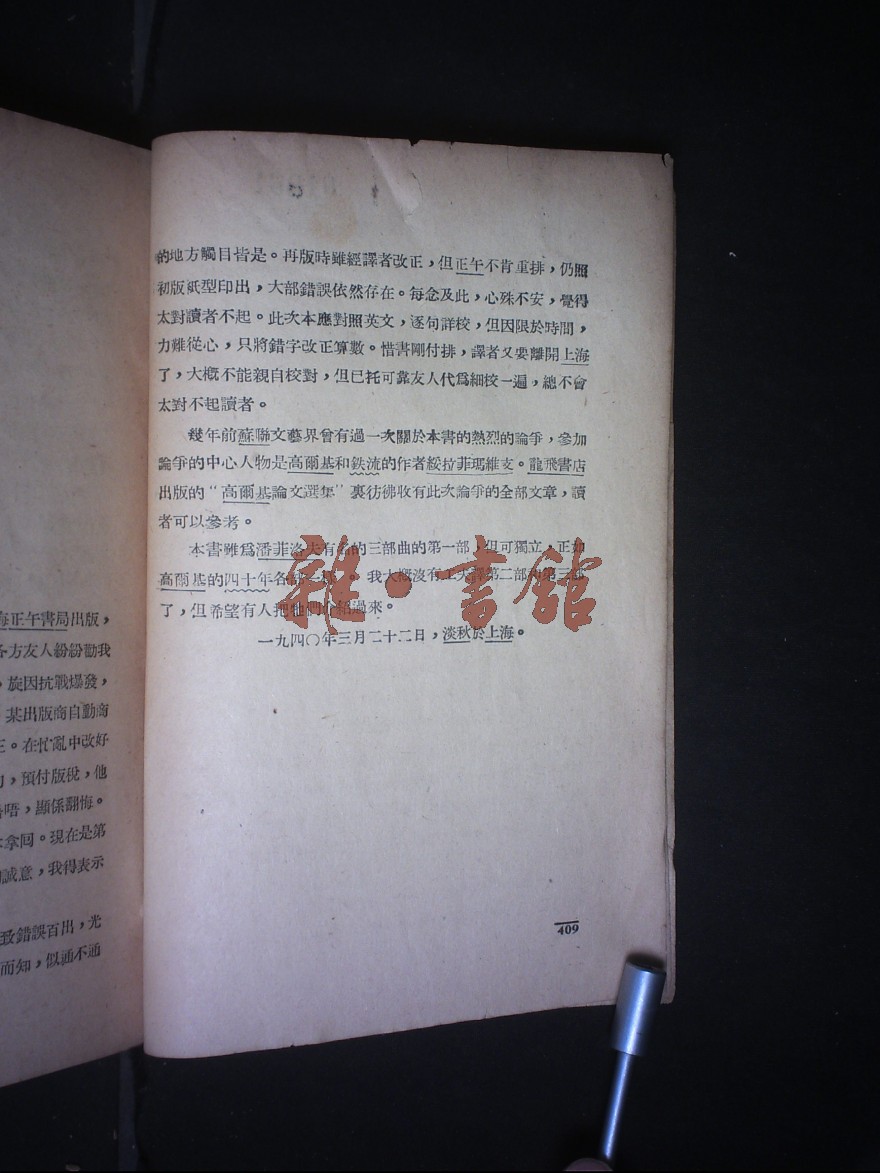 海正午書局出版,
各方友人紛紛勸我
,旋因抗戰爆發,
某出版商自動商
正。在忙亂中改好
,預付版稅,他
唔,顯係翻悔。
拿囘。現在是第
誠意,我得表示
致錯誤百出,尤
而知,似通不通
的地方觸目皆是。再版時雖經譯者改正,但正午不肯重排,仍照
初版紙型印出,大部錯誤依然存在。每念及此,心殊不安,覺得
太對讀者不起。此次本應對照英文,逐句詳校,但因限於時間,
力難從心,只將錯字改正算數。惜書剛付排,譯者又要離開上海
了,大概不能親自校對,但已托可靠友人代爲細校一遍,總不會
太對不起讀者。
幾年前蘇聯文藝界曾有過一次關於本書的熱烈的論爭,參加
論爭的中心人物是高爾基和鉄流的作者綏拉菲瑪維支。龍飛書店
出版的“高爾基論文選集”裏彷彿收有此次論爭的全部文章,讀
者可以參考。
本書雖爲潘菲洛夫有名的三部曲的第一部,但可獨立,正如
高爾基的四十年各部一樣。我大概沒有工夫譯第二部和第三部
了,但希望有人把牠們介紹過來。
一九四〇年三月二十二日,淡秋於上海。
409
雜·書館